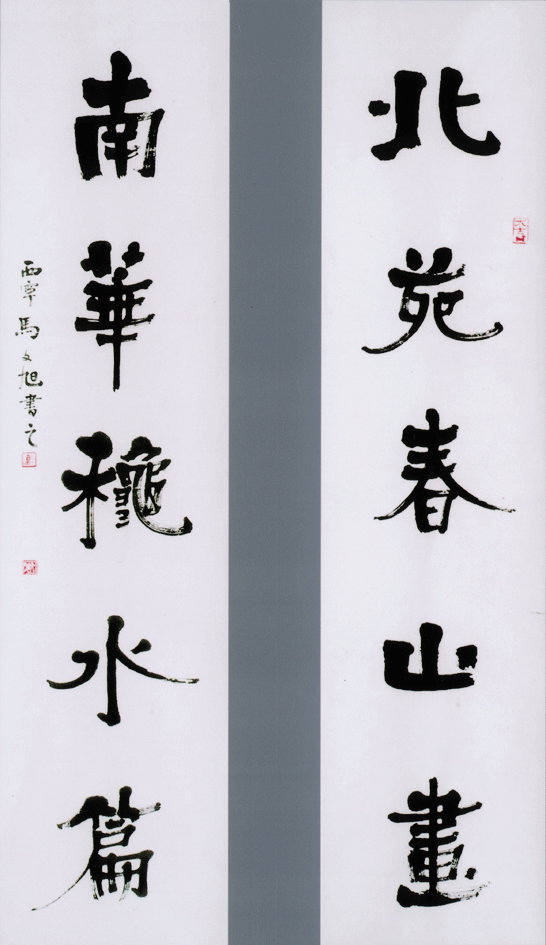 北苑春山畫
南華龝水篇
西寧馬文旭書之